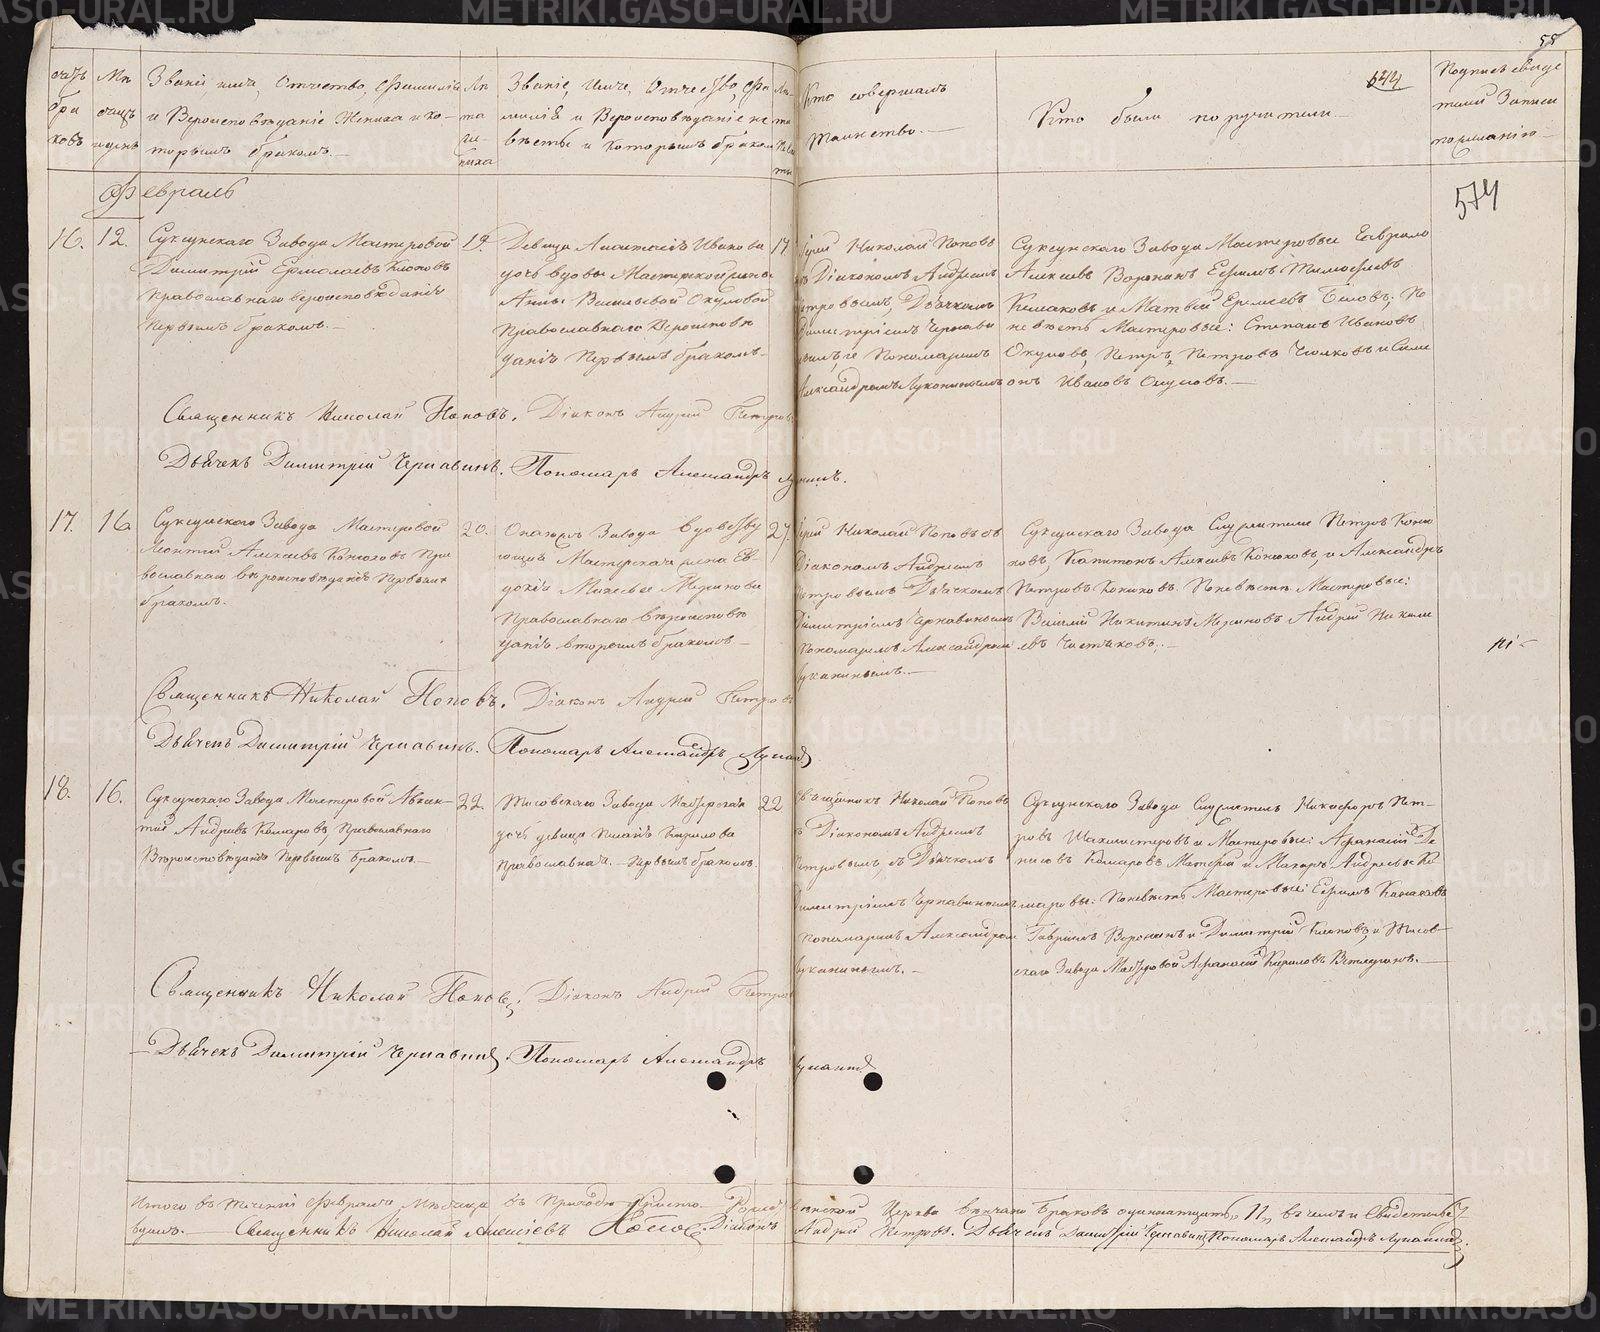 55
544
574
Звание, имя, Отчество, Фамилия
и Вероисповедание Жениха и ко-
торымъ бракомъ.
Звание, Имя, Отчество, Фа
милия и Вероисповедание не
весты и которымъ бракомъ
Кто совершалъ
таинство.
Кто были поручители.
Подпись свиде
телей Записи
по желанію
Февраль
16. 12.
Суксунскаго Завода Мастеровой
Димитрій Ермолаевъ
Православнаго вероисповѣданія
первымъ бракомъ.
19
Девица Анастасія Иванова
дочь вдовы Мастерской жены
Анны Васильевой Окуловой
Православнаго Вероисповѣ
данія Первымъ бракомъ
17.
Іерей Николай Поповъ
Діакономъ Андреемъ
Петровымъ, Дьячкомъ
Димитріемъ Чернави
нымъ и Пономаремъ
Александромъ Луканинымъ
Суксунскаго Завода Мастеровые Гаврило
Алексѣевъ Воронинъ Ефимъ Тимофеевъ
и Матвей Еремеевъ Бѣловъ; По
невѣсте Мастеровые: Степанъ Ивановъ
Окуловъ, Петръ Петровъ и Сим
онъ Ивановъ Окуловъ.
Священникъ Николай Поповъ. Діаконъ Андрей Петровъ
Дьячекъ Димитрій Чернавинъ. Пономарь Александръ Луканинъ.
17. 16
Суксунскаго Завода Мастеровой
Леонтій Алексѣевъ Конюховъ Пра
вославнаго вѣроисповѣданія Первымъ
бракомъ.
20.
Завода Вдовству
ющая Мастерская жена Ев-
докія
Православнаго Вероисповѣ
данія вторымъ бракомъ
27.
Іерей Николай Поповъ съ
Діакономъ Андреемъ
Петровымъ Дьячкомъ
Димитріемъ Чернавинымъ
Пономаремъ Александромъ
Луканинымъ.
Суксунскаго Завода Служители Петръ Коню
ховъ, Капитонъ Алексѣевъ Конюховъ, и Александръ
Петровъ Конюховъ. По невѣсте Мастеровые:
Василій Никитинъ Андрей Никола
евъ Чистяковъ.
Священникъ Николай Поповъ. Діаконъ Андрей Петровъ
Дьячекъ Димитрій Чернавинъ. Пономарь Александръ Луканинъ
18. 16.
Суксунскаго Завода Мастеровой Авкен-
тій Андреевъ Комаровъ, Православнаго
Вѣроисповѣданія Первымъ бракомъ.
22.
Тисовскаго Завода Мастерская
дочь девица Кирилова
Православная. Первымъ бракомъ.
22
Священникъ Николай Поповъ
съ Діакономъ Андреемъ
Петровымъ, съ Дьячкомъ
Димитріемъ Чернавинымъ
Пономаремъ Александромъ
Луканинымъ.
Суксунскаго Завода Служитель Никифоръ Пет-
ровъ и Мастеровые: Афанасій Де
нисовъ Комаровъ Матвей и Макаръ Андреевы Ко
маровы: По невѣстѣ Мастеровые: Ефимъ
Гаврилъ Воронинъ и Димитрій и Тисов-
скаго Завода Мастеровой Афанасій Кириловъ
Священникъ Николай Поповъ. Діаконъ Андрей Петровъ
Дьячекъ Димитрій Чернавинъ. Пономарь Александръ Луканинъ
Итого въ теченіи Февраля Месяца въ Приходе Христо-Рождественской Церкви венчано браковъ одиннатцать 11 въ чемъ и свидетельст
вуемъ. Священникъ Николай Алексіевъ Поповъ Діаконъ Андрей Петровъ. Дьячекъ Димитрій Чернавинъ Пономарь Александръ Луканинъ.
METRIKI.GASO-URAL.RU